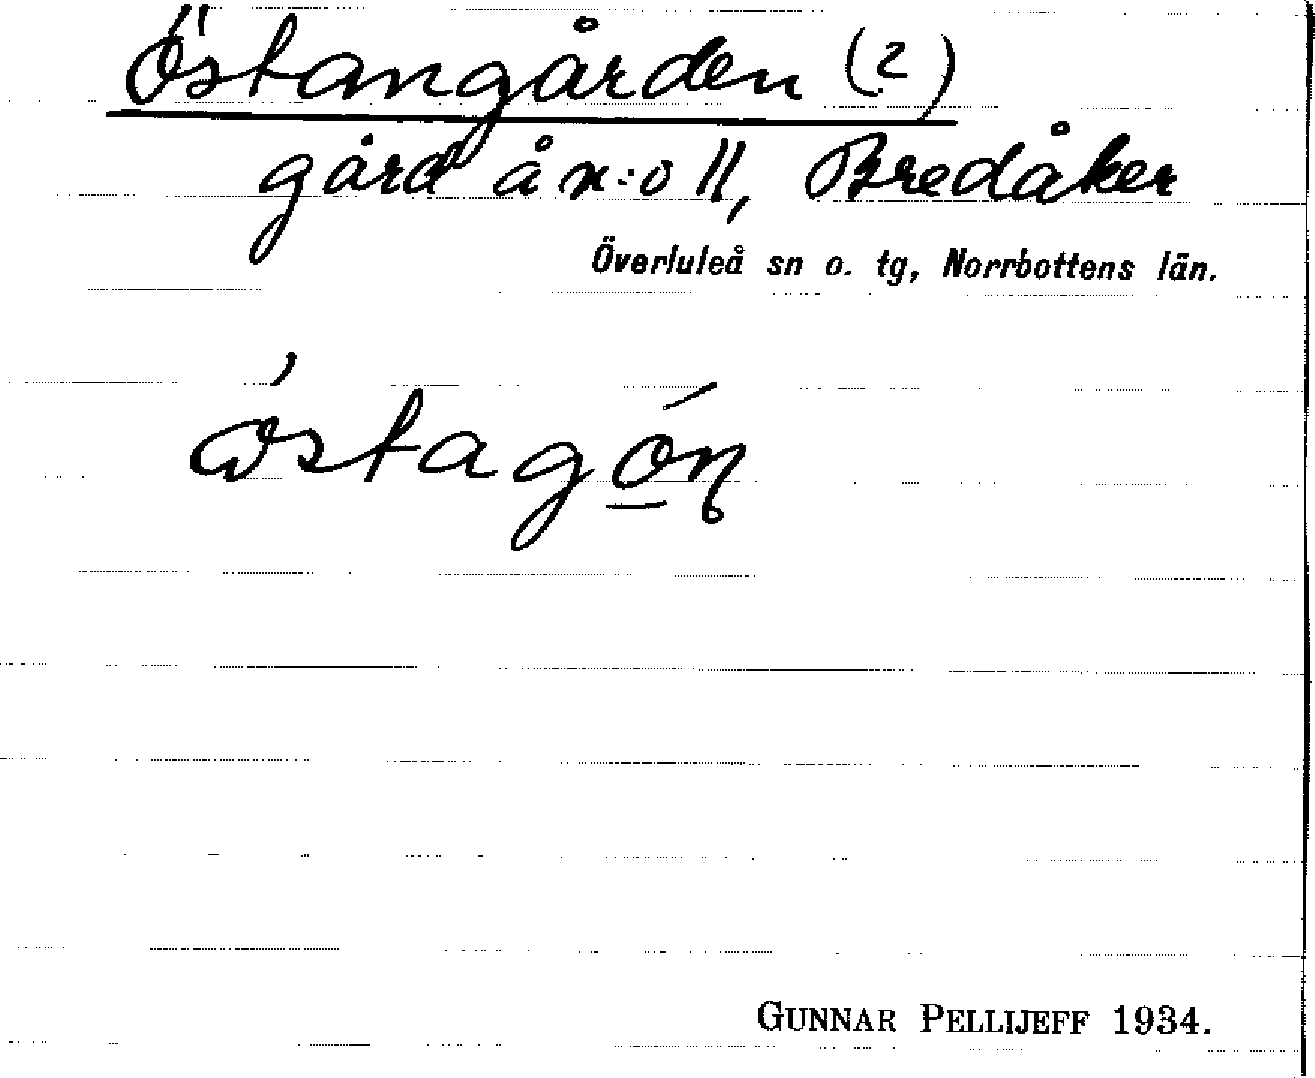 Östangården (2)
gård å n:o 11, Bredåker
Överluleå sn o. tg, Norrbottens län.
GUNNAR PELLIJEFF 1934.